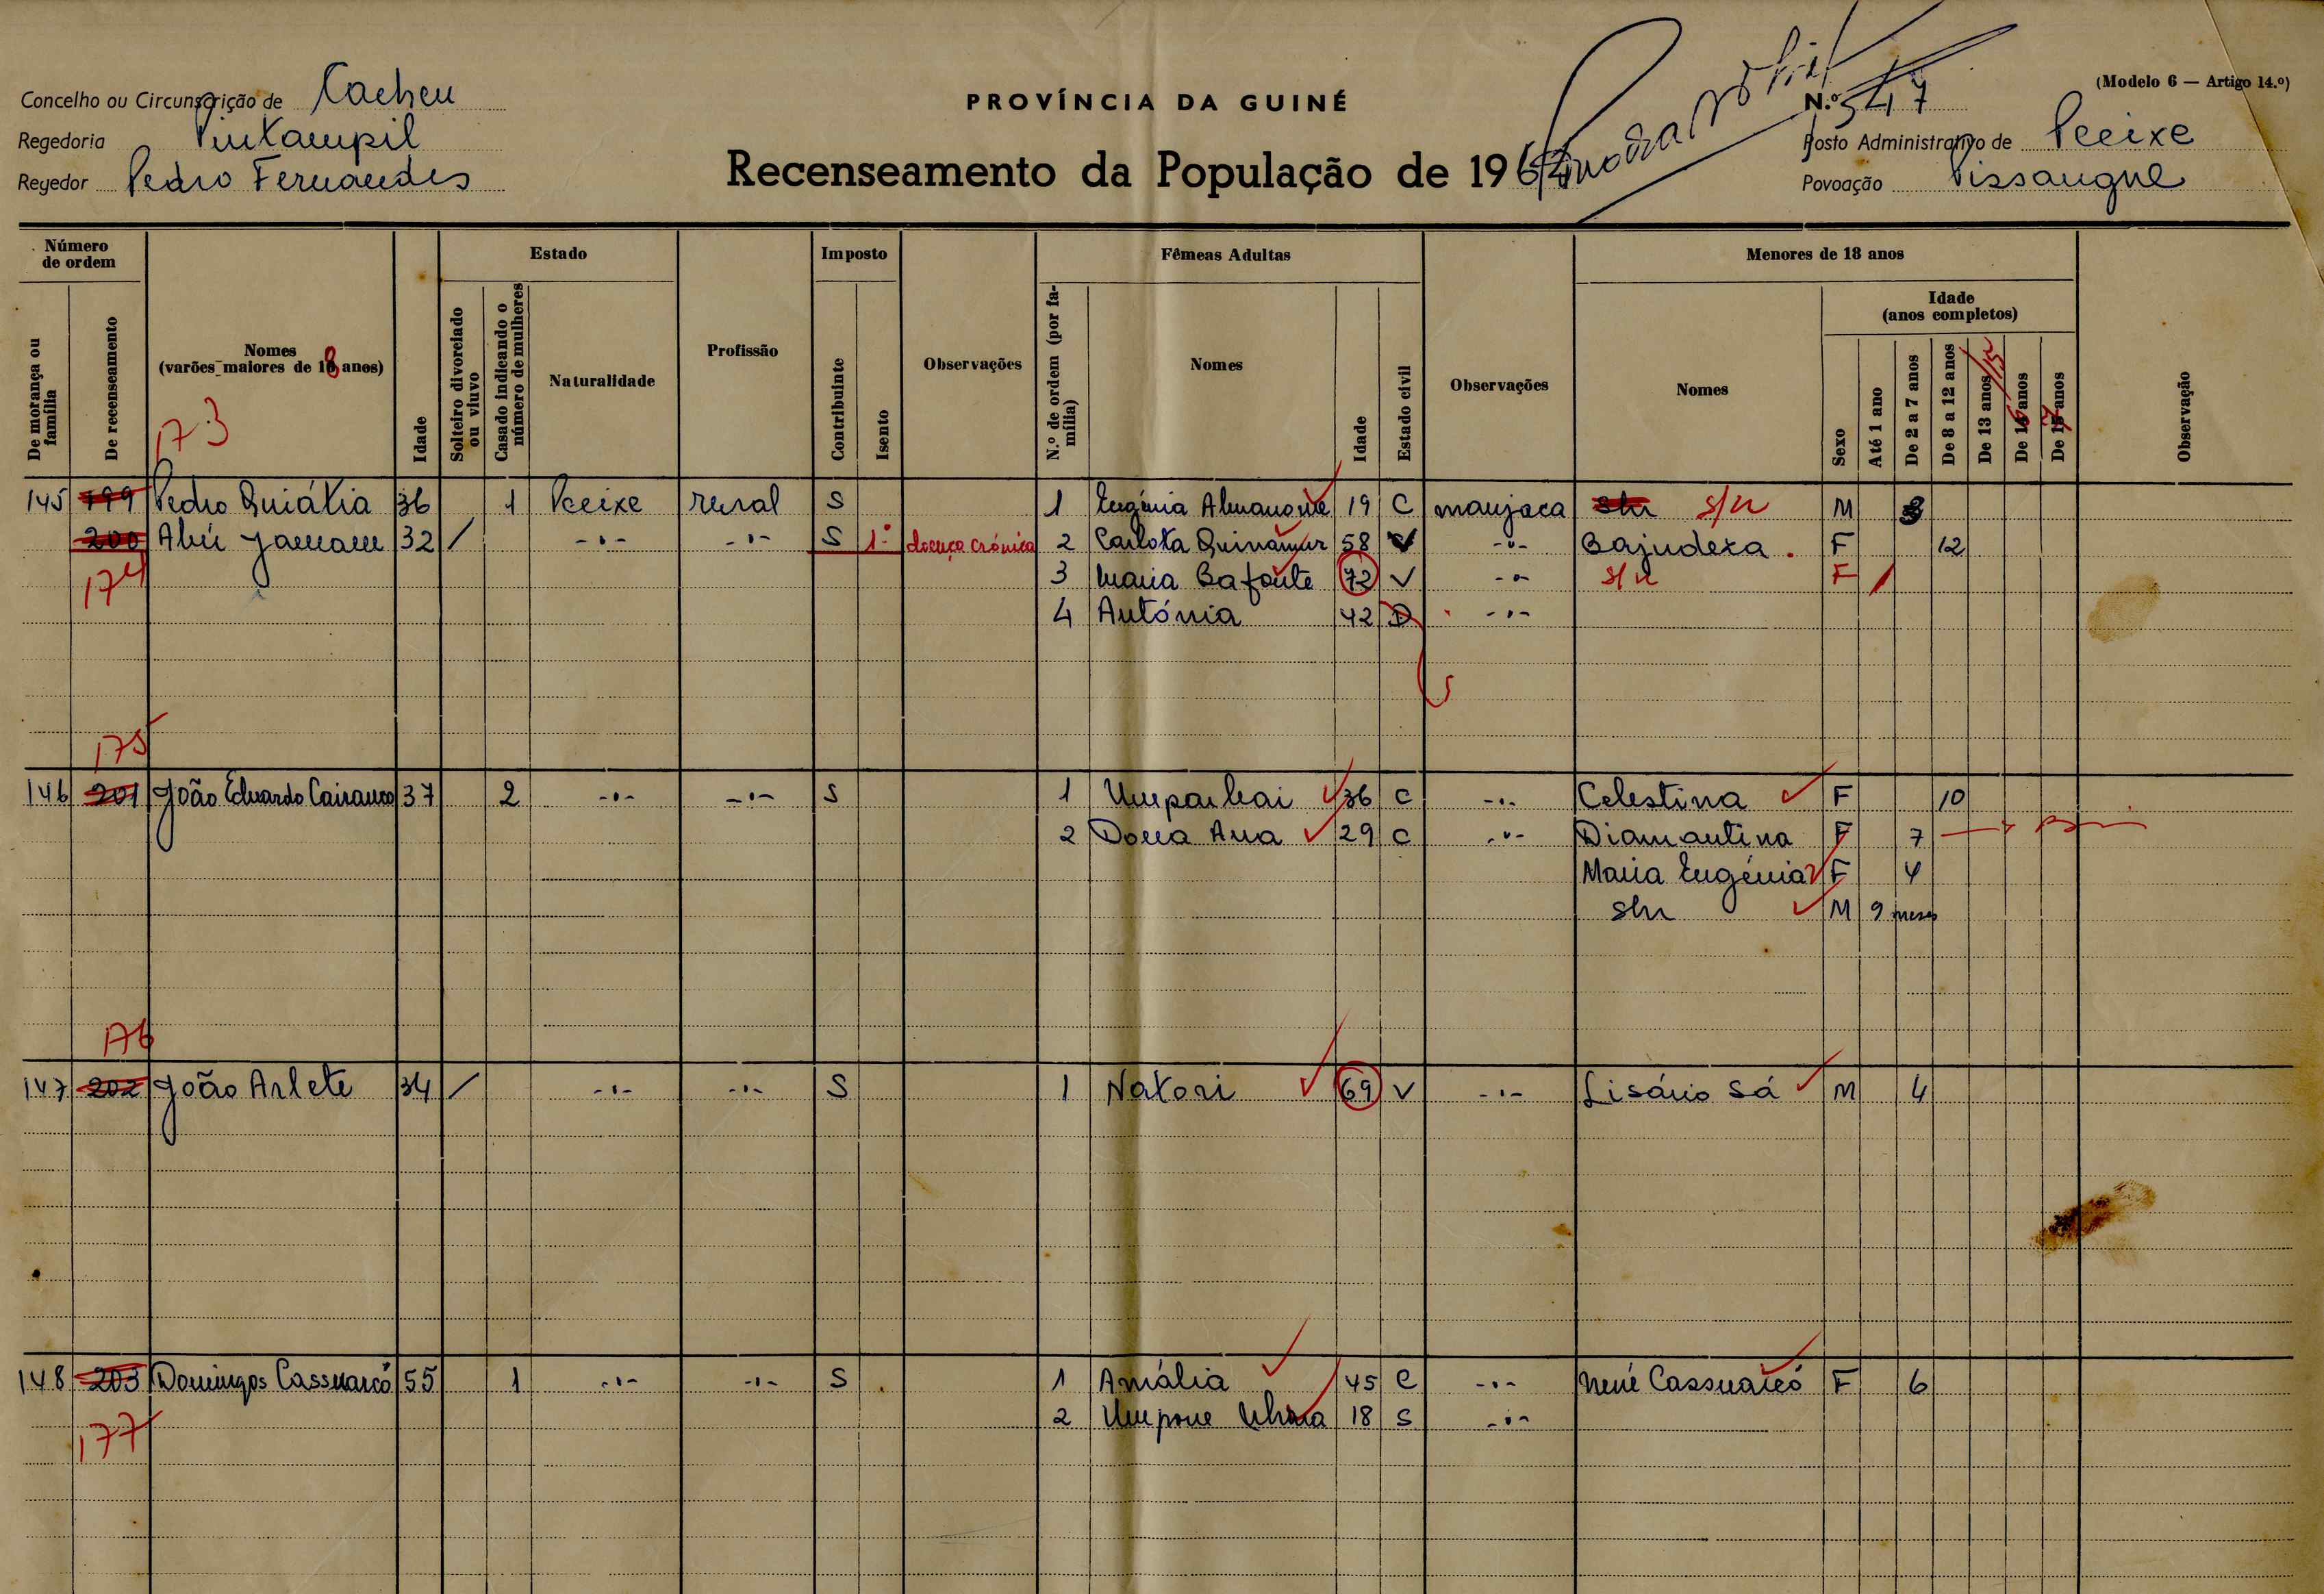 Concelho ou Circunscrição de Cacheu
Regedoria Pintampil
Regedor Pedro Fernandes
PROVÍNCIA DA GUINÉ
Recenseamento da População de 1964
(Modelo 6 — Artigo 14.º)
N.º 547
Posto Administrativo de Peeixe
Povoação Pissangue
Número de ordem
De morança ou família
De recenseamento
Nomes (varões maiores de 18 anos)
Idade
Estado
Solteiro divorciado ou viuvo
Casado indicando o número de mulheres
Naturalidade
Profissão
Imposto
Contribuinte
Isento
Observações
Fêmeas Adultas
N.º de ordem (por família)
Nomes
Idade
Estado civil
Observações
Menores de 18 anos
Nomes
Sexo
Idade (anos completos)
Até 1 ano
De 2 a 7 anos
De 8 a 12 anos
De 13 anos
De 16 anos
De 17 anos
Observação
173
145 199 Pedro Quiátia 36 1 Peeixe rural S 1 Eugénia 19 C manjaca s/n M 3
200 32 / -"- -"- S 1- doença crónica 2 Carlota 58 V -"- Bajudeza F 12
174 3 Maria Bafonte 72 V -"- s/n F /
4 Antónia 42 D -"-
175
146 201 João Eduardo 37 2 -"- -"- S 1 Umparhai 36 C -"- Celestina F 10
2 Dona Ana 29 C -"- Diamantina F 7
Maria Eugénia F 4
s/n M 9 meses
176
147 202 João Arlete 34 / -"- -"- S 1 Natori 69 V -"- Lisário Sá M 4
148 203 Domingos Cassuarcó 55 1 -"- -"- S 1 Amália 45 C -"- Nené Cassuarcó F 6
177 2 Umpone 18 S -"-